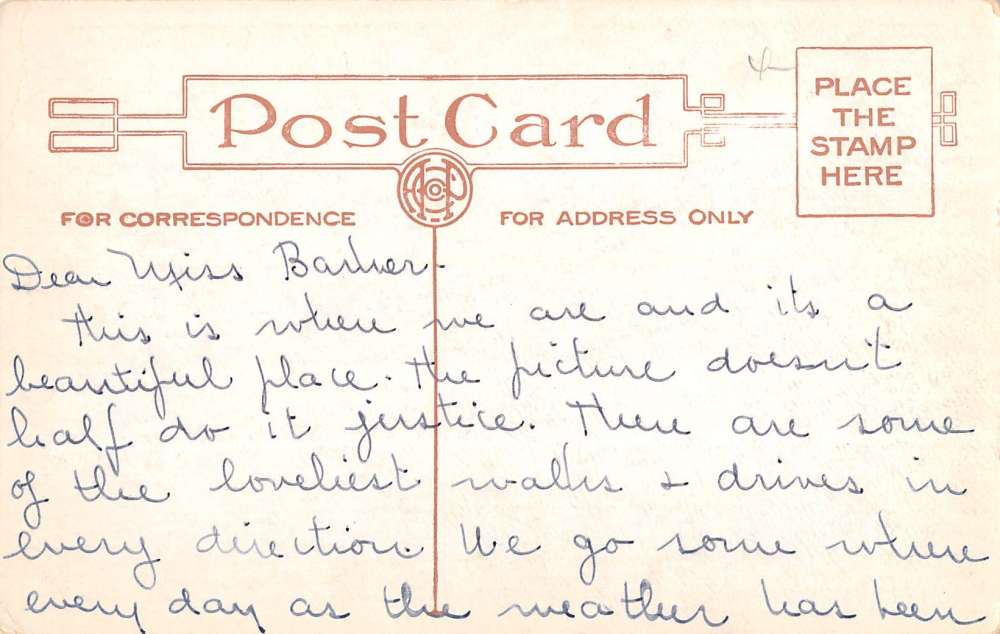 Post Card
PLACE
THE
STAMP
HERE
FOR CORRESPONDENCE
FOR ADDRESS ONLY
Dear Miss Barker-
This is where we are and its a
beautiful place. The picture doesn't
half do it justice. There are some
of the loveliest walks & drives in
every direction. We go some where
every day as the weather has been